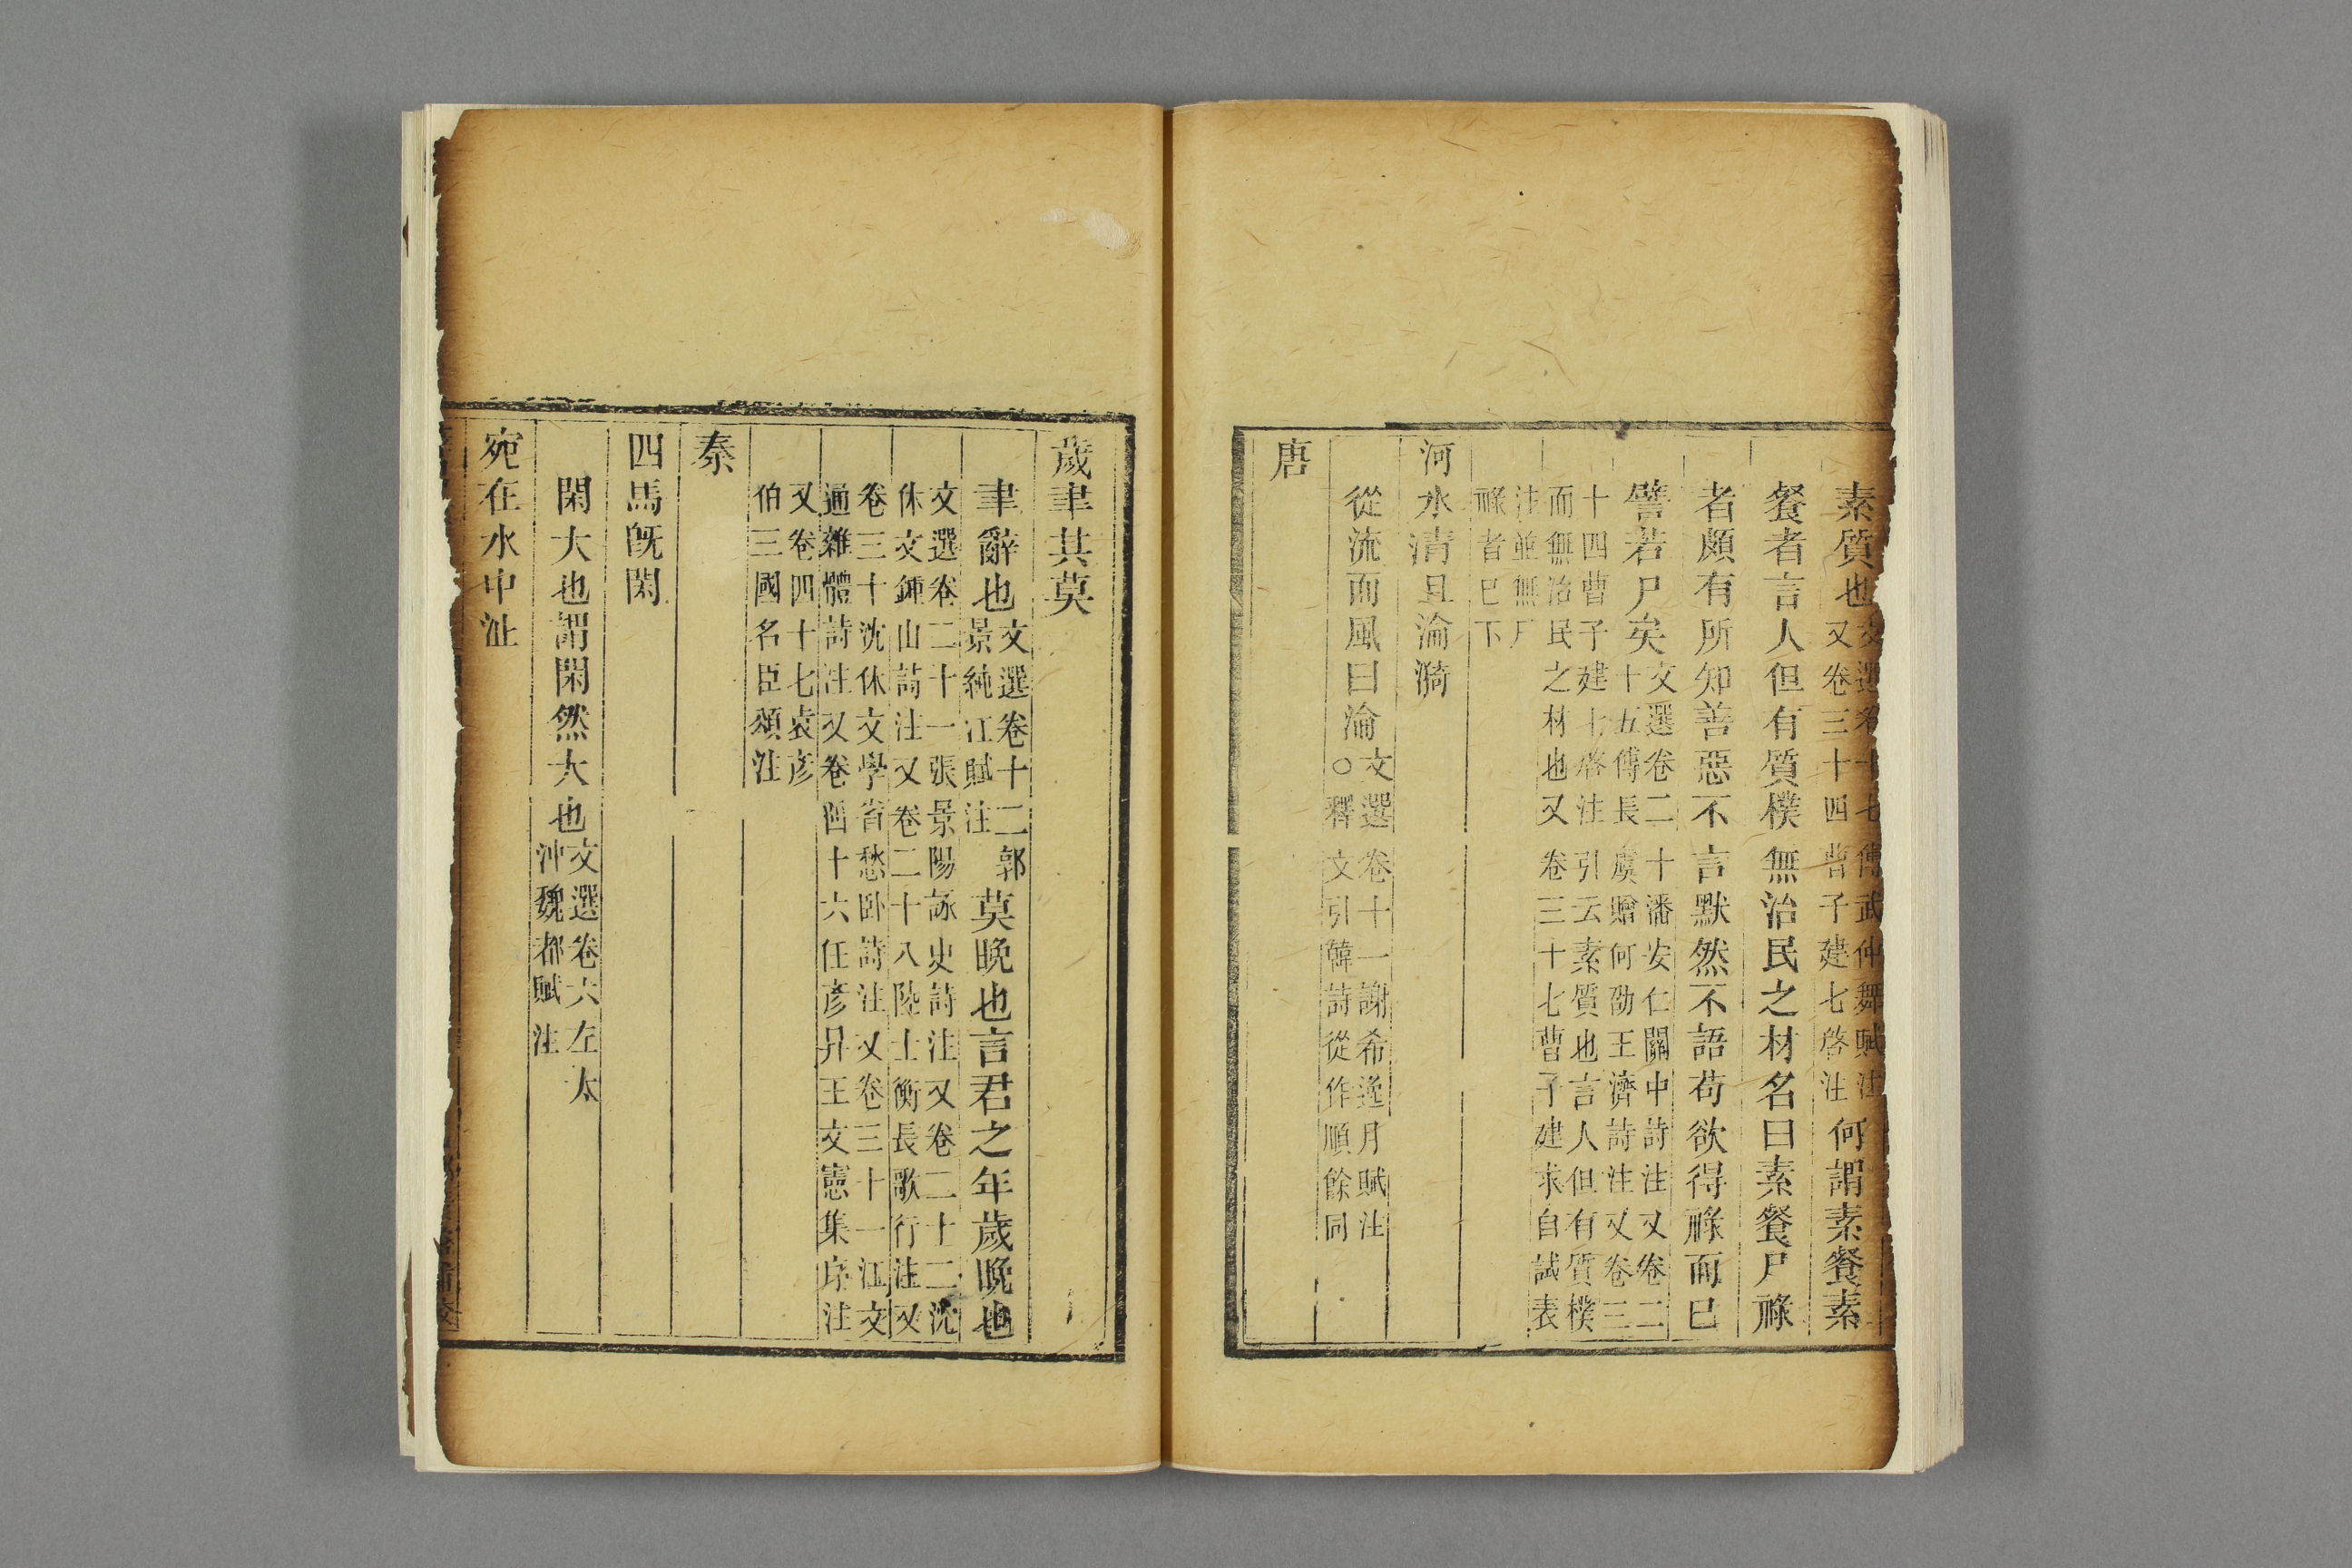 素質也文選卷十七傅武仲舞賦注又卷三十四曹子建七啓注何謂素餐素
餐者言人但有質樸無治民之材名曰素餐尸祿
者頗有所知善惡不言默然不語苟欲得祿而已
譬若尸矣文選卷二十潘安仁關中詩注又卷二十五傅長虞贈何劭王濟詩注又卷三
十四曹子建七啓注引云素質也言人但有質樸
而無治民之材也又卷三十七曹子建求自試表
注並無尸
祿者已下
河水清且淪漪
從流而風曰淪文選卷十一謝希逸月賦注○釋文引韓詩從作順餘同
唐
歲聿其莫
聿辭也文選卷十二郭景純江賦注莫晚也言君之年歲晚也
文選卷二十一張景陽詠史詩注又卷二十二沈
休文鍾山詩注又卷二十八陸士衡長歌行注又
卷三十沈休文學省愁臥詩注又卷三十一江文
通雜體詩注又卷四十六任彥昇王文憲集序注
又卷四十七袁彥
伯三國名臣頌注
秦
四馬旣閑
閑大也謂閑然大也文選卷六左太沖魏都賦注
宛在水中沚